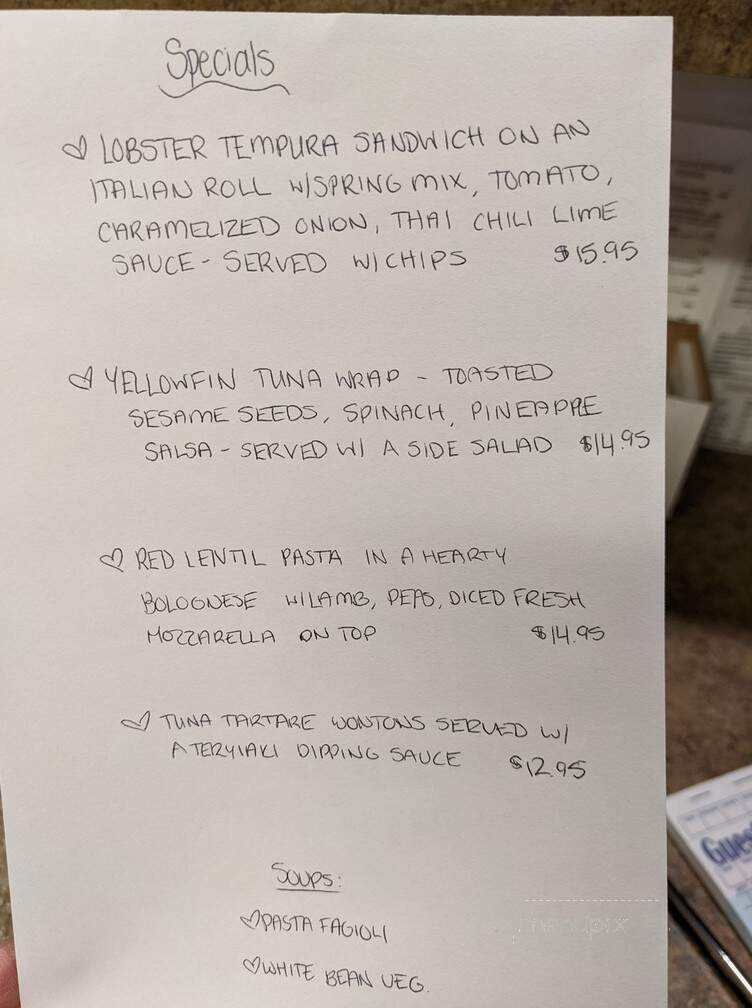 Specials
LOBSTER TEMPURA SANDWICH ON AN
ITALIAN ROLL W/SPRING MIX, TOMATO,
CARAMELIZED ONION, THAI CHILI LIME
SAUCE - SERVED W/CHIPS $15.95
YELLOWFIN TUNA WRAP - TOASTED
SESAME SEEDS, SPINACH, PINEAPPLE
SALSA - SERVED W/ A SIDE SALAD $14.95
RED LENTIL PASTA IN A HEARTY
BOLOGNESE W/LAMB, PEAS, DICED FRESH
MOZZARELLA ON TOP $14.95
TUNA TARTARE WONTONS SERVED W/
A TERYIAKI DIPPING SAUCE $12.95
SOUPS:
PASTA FAGIOLI
WHITE BEAN VEG.